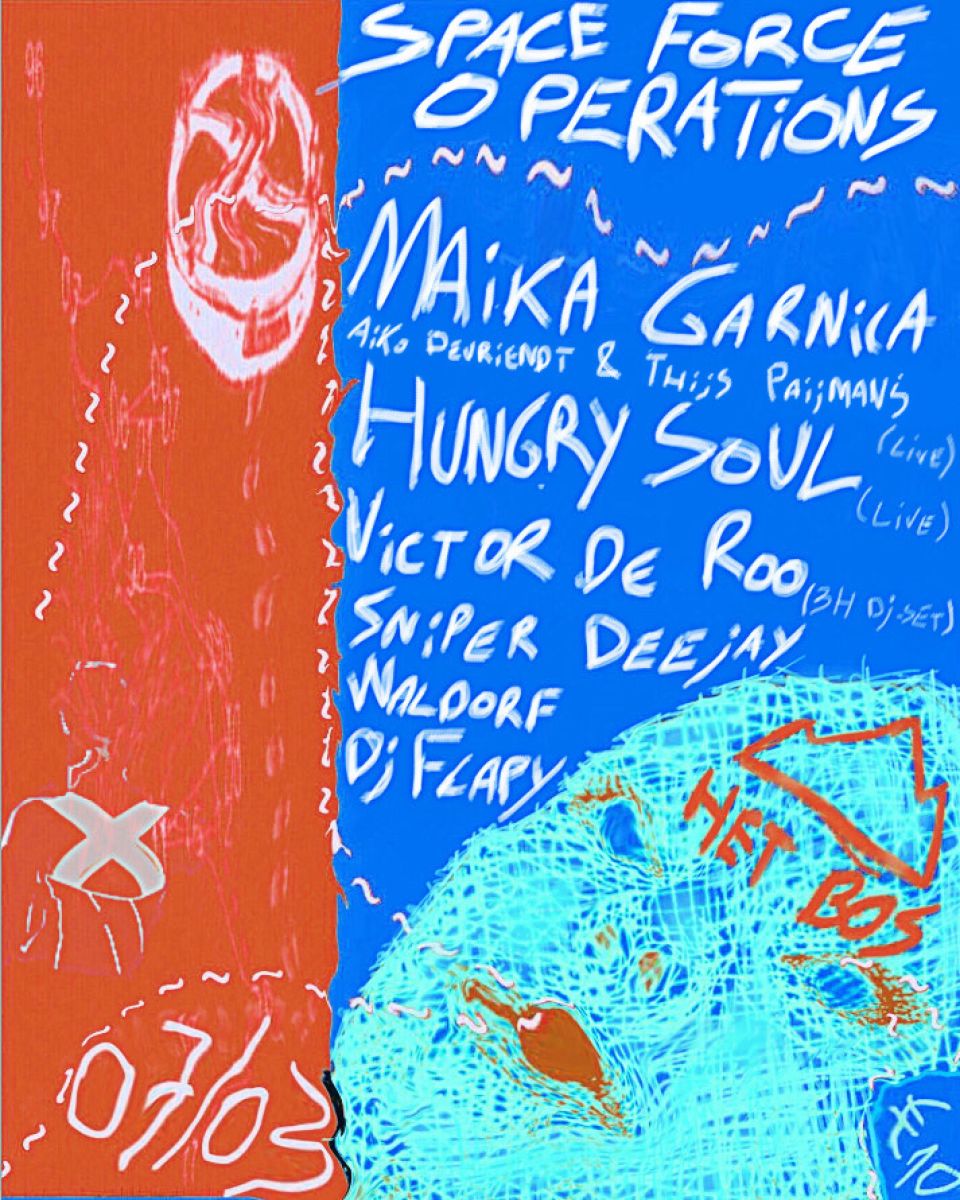 SPACE FORCE
OPERATIONS
MAiKA GARNiCA
AiKo DEVRiENDT & THijS PAijMANS
(LiVE)
HUNGRY SOUL
(LiVE)
ViCTOR DE ROO
(3H Dj-SET)
SNiPER DEEjAY
WALDORF
Dj FLAPY
HET
BOS
07/03